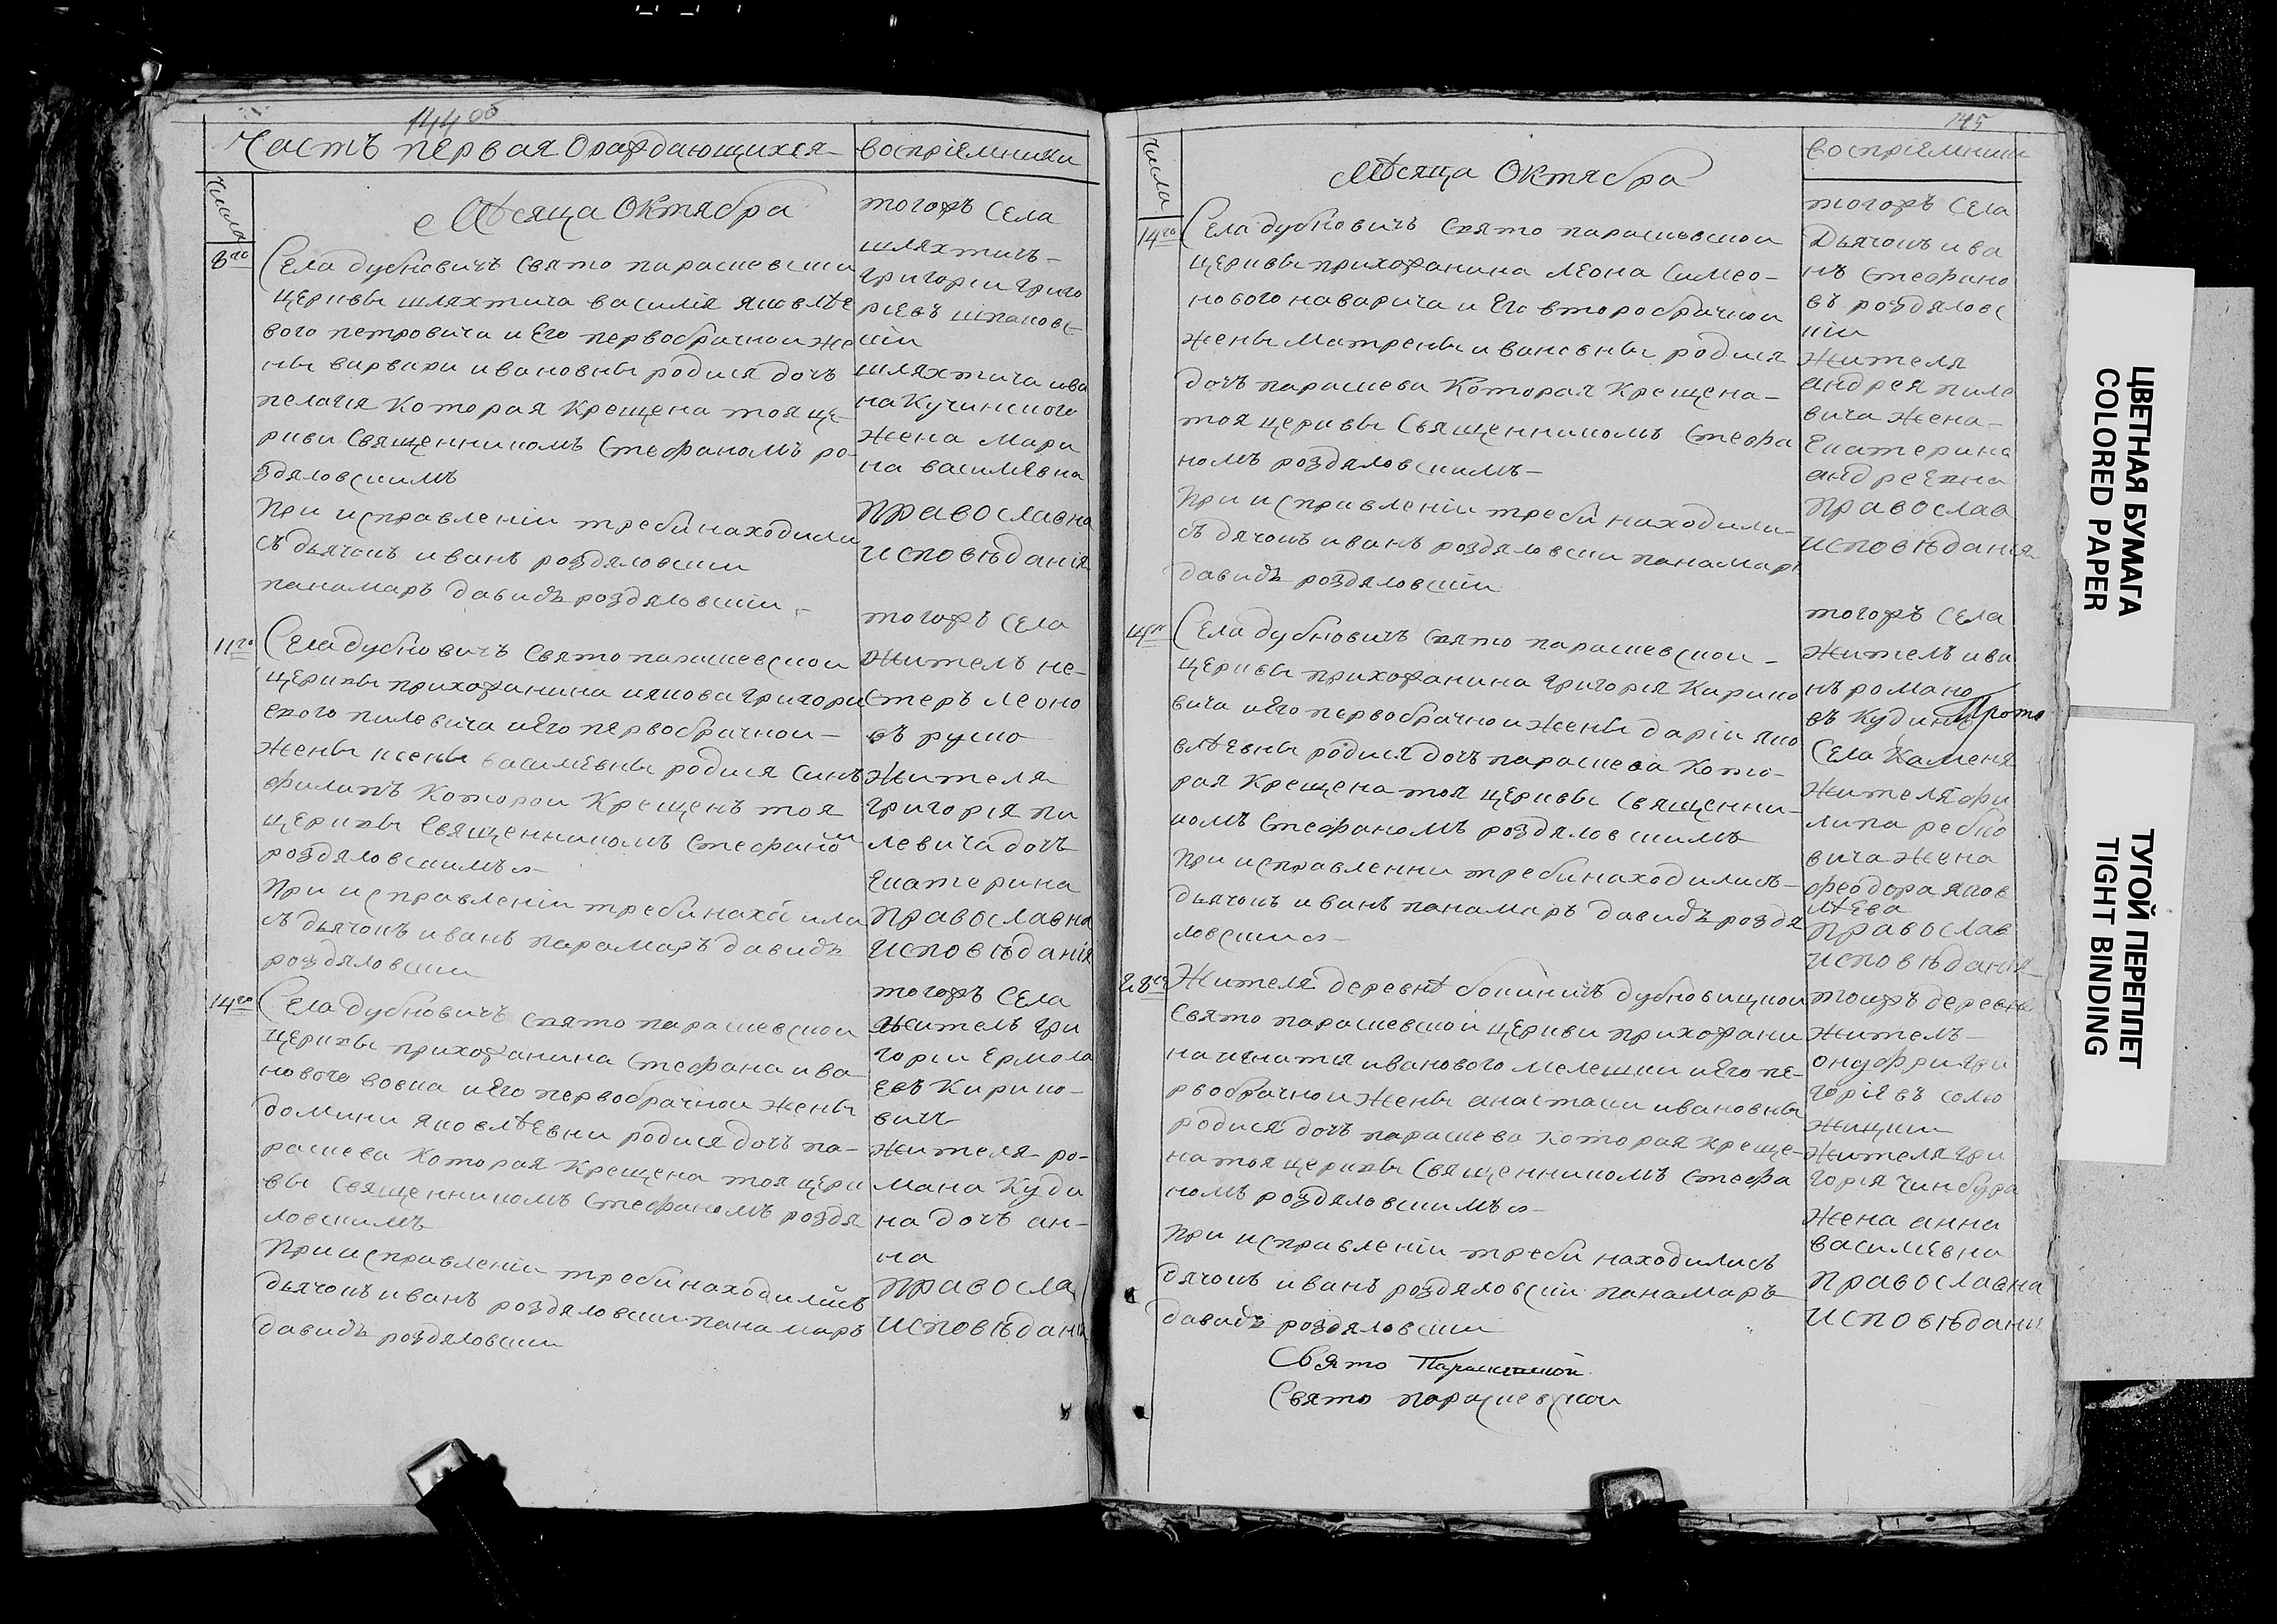 144 об
Часть первая Ораждающихся
воспріемники
Числа
Мѣсяца Октября
8го
Села дубновичъ свято парасковской
церквы шляхтича василія яковлѣе
вого петровича и его первобрачной же
ны варвари ивановны родися дочъ
пелагія которая крещена тоя це
ркви священникомъ стефаномъ ро
здяловскимъ
При исправленіи требы находили
сь дьячокъ иванъ роздяловскии
панамаръ давидъ роздяловскіи
тогожъ села
шляхтичъ
григории григо
ріевъ шпаковс
кіи
шляхтича ива
на Кучинского
жена мари
на василѣвна
православна
исповѣданія
11го
Села дубновичъ свято парасковской
церквы прихожанина иякова григори
евого пилевича и его первобрачной
жены ксены василѣвны родися синъ
филипъ которои крещенъ тоя
церквы священникомъ стефаном
роздяловскимъ
При исправленіи требы находили
сь дьячокъ иванъ парамаръ давидъ
роздяловскии
тогожъ села
житель не
стеръ леоно
въ рушко
жителя
григорія пи
левича дочъ
екатерина
православна
исповѣданія
14го
Села дубновичъ свято парасковской
церквы прихожанина стефана ива
нового вовка и его первобрачной жены
домини яковлѣевни родися дочъ па
раскева которая крещена тоя церк
вы священникомъ стефаномъ роздя
ловскимъ
При исправленіи требы находились
дьячокъ иванъ роздяловскии панамаръ
давидъ роздяловскии
тогожъ села
житель гри
гории ермола
евъ Кирико
вичъ
жителя ро
мана Куди
на дочъ ан
на
правосла
исповѣдані
145
Числа
Мѣсяца Октября
воспріемники
14го
Села дубновичъ свято парасковской
церквы прихожанина леона симео
нового наварича и его второбрачной
жены матрены ивановны родися
дочъ параскева которая крещена
тоя церквы священникомъ стефа
номъ роздяловскимъ
При исправленіи требы находили
сь дячокъ иванъ роздяловскии панамар
давидъ роздяловскіи
тогожъ села
Дьячокъ ива
нъ стефано
въ роздяловс
кіи
жителя
андрея пиле
вича жена
екатерина
андреевна
православ
исповѣданія
14го
Села дубновичъ свято парасковской
церквы прихожанина григорія Кирико
вича и его первобрачной жены даріи яко
влѣевны родися дочъ параскева кото
рая крещена тоя церквы священни
комъ стефаномъ роздяловскимъ
При исправлении требы находились
дьячокъ иванъ панамаръ давидъ роздя
ловскии
тогожъ села
житель ива
нъ романо
въ Кудин Прото
Села Каменя
жителя фи
липа ребко
вича жена
феодора яков
лѣева
православ
исповѣданія
28го
Жителя деревнѣ бокиничъ дубновицкои
свято парасковской церкви прихожани
на игнатія иванового мелешки и его пе
рвобрачной жены анастасии ивановны
родися дочъ параскева которая креще
на тоя церквы священникомъ стефа
номъ роздяловскимъ
При исправленіи требы находились
дячокъ иванъ роздяловскіи панамаръ
давидъ роздяловскии
тоижъ деревны
житель
онуфри гри
горіевъ солю
жицкии
жителя гри
горія чинбура
жена анна
василѣвна
православна
исповѣдани
Свято Параскевской
Свято парасковской
ЦВЕТНАЯ БУМАГА
COLORED PAPER
ТУГОЙ ПЕРЕПЛЕТ
TIGHT BINDING